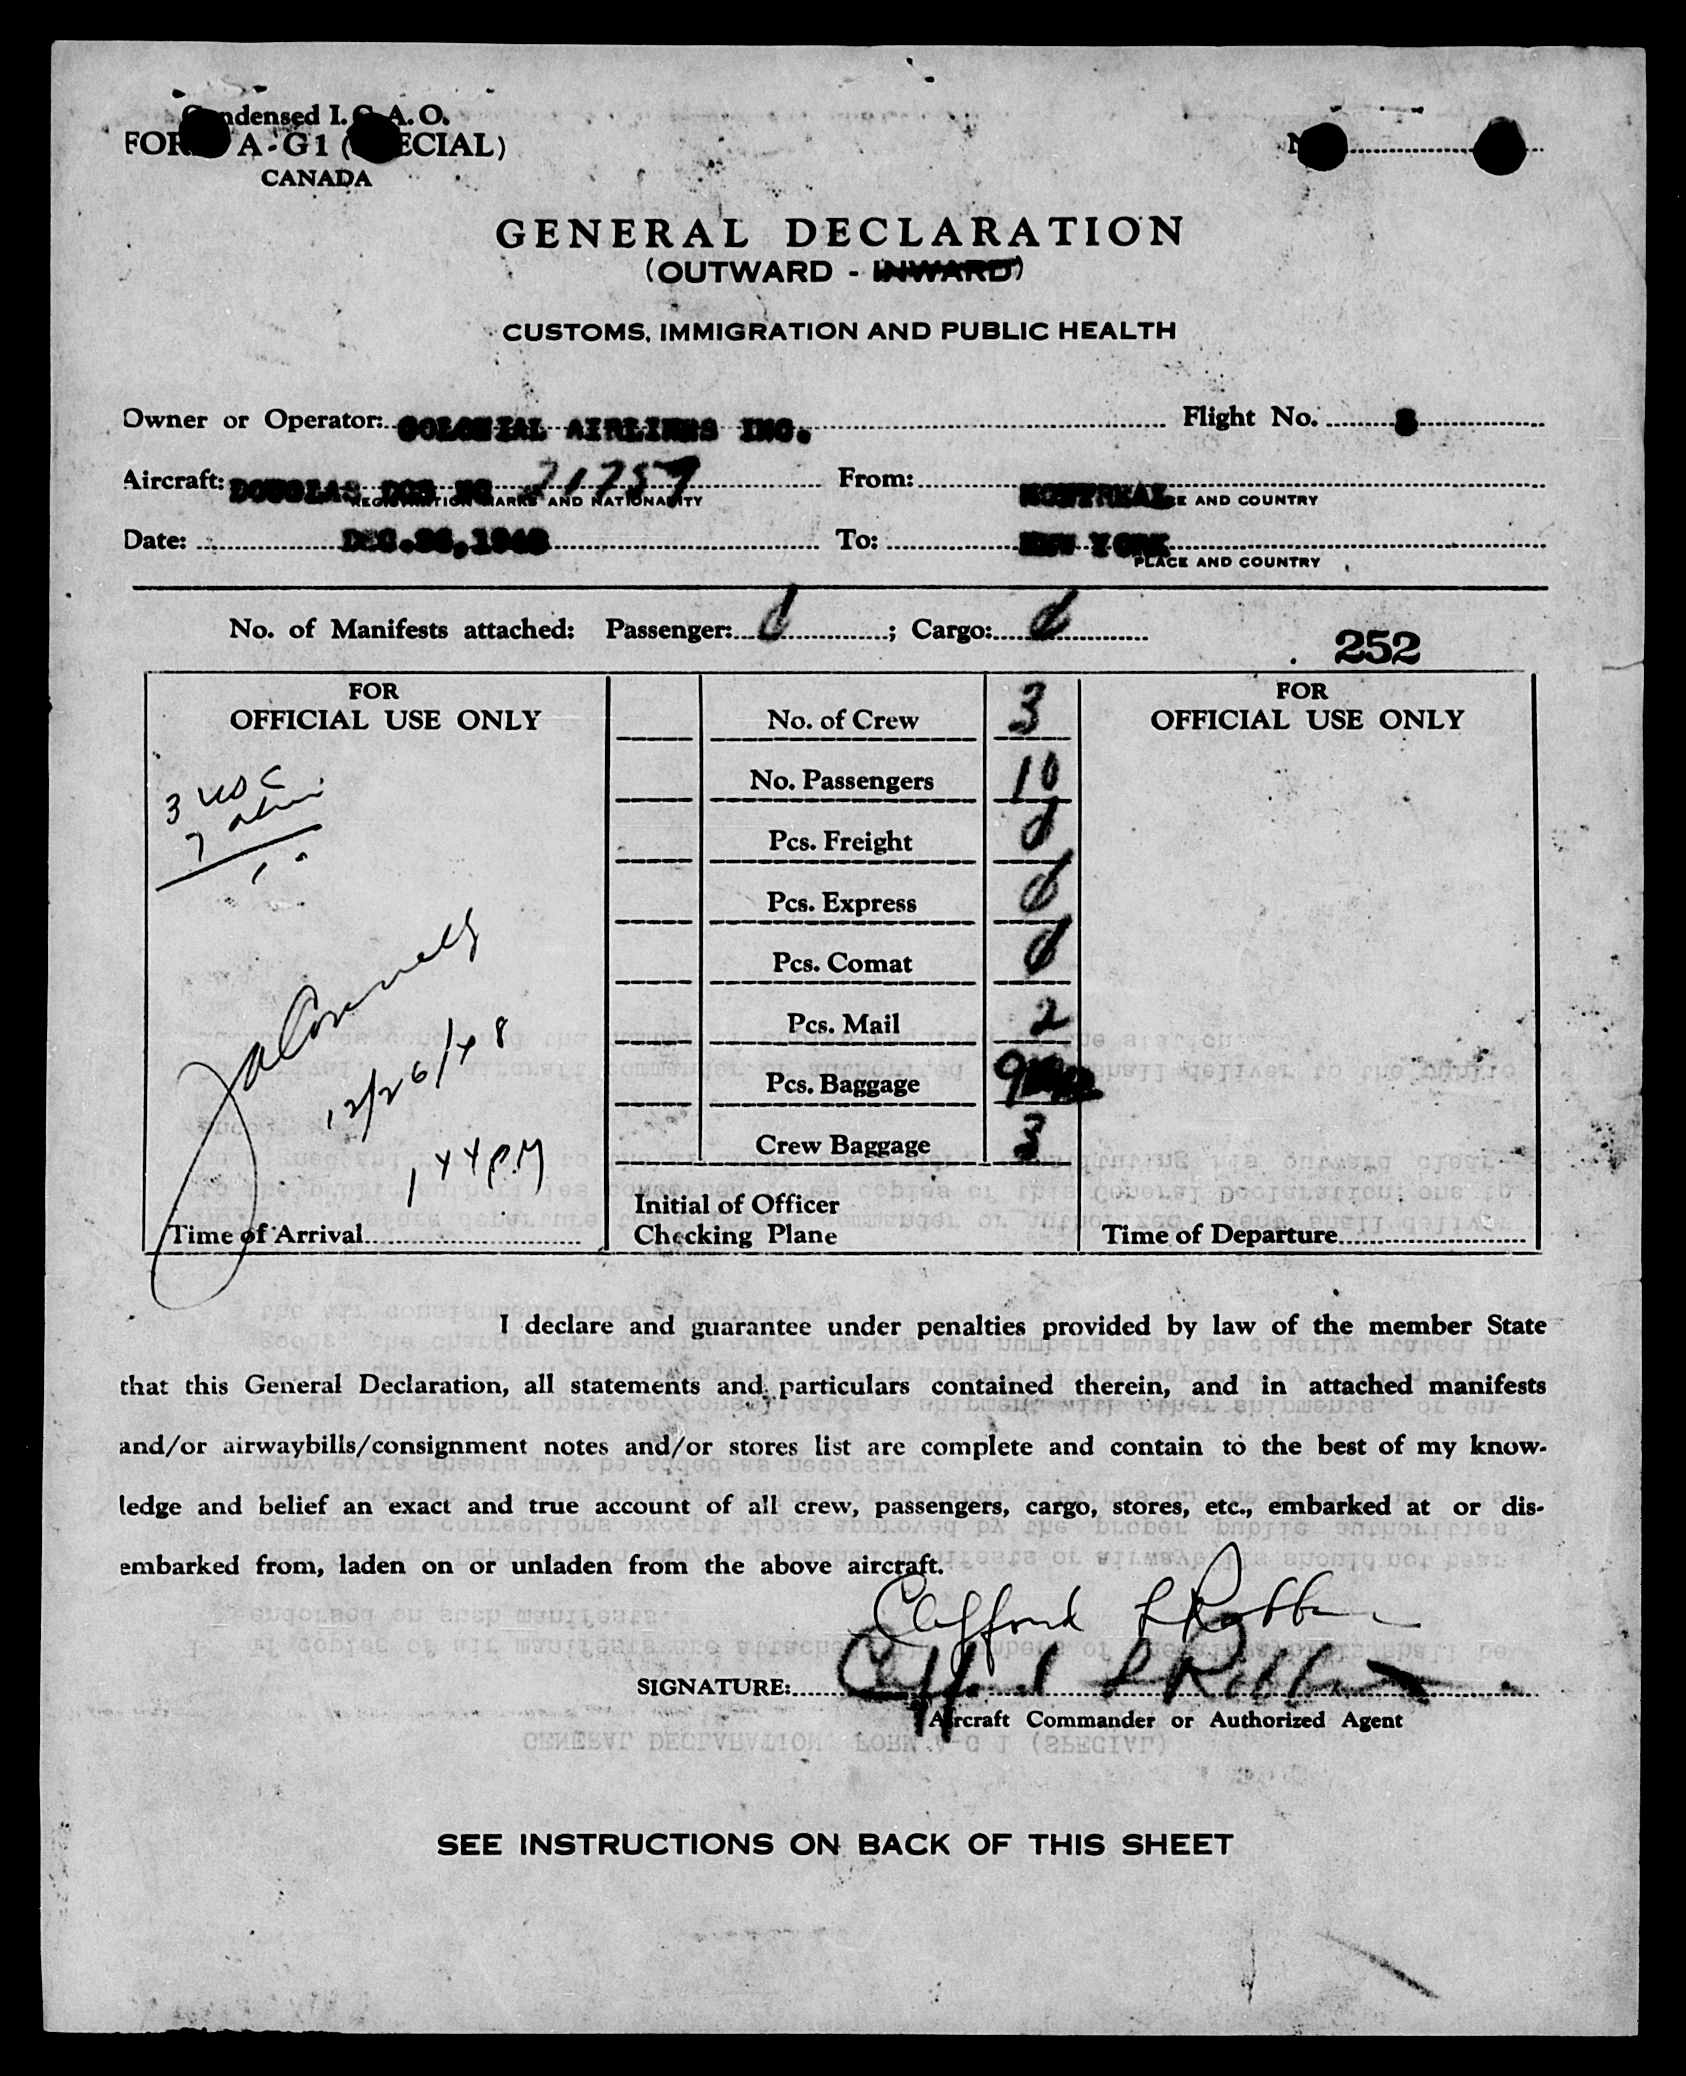 Condensed I.C.A.O.
FORM A-G1 (SPECIAL)
CANADA
GENERAL DECLARATION
(OUTWARD - INWARD)
CUSTOMS, IMMIGRATION AND PUBLIC HEALTH
Owner or Operator: COLONIAL AIRLINES INC. Flight No. 8
Aircraft: DOUGLAS DC3 NC 21757 From: MONTREAL
REGISTRATION MARKS AND NATIONALITY PLACE AND COUNTRY
Date: DEC. 26, 1948 To: NEW YORK
PLACE AND COUNTRY
No. of Manifests attached: Passenger: 0; Cargo: 0
252
FOR
OFFICIAL USE ONLY
3 USC
7
10
12/26/48
1 44 P.M
Time of Arrival
No. of Crew 3
No. Passengers 10
Pcs. Freight 0
Pcs. Express 0
Pcs. Comat 0
Pcs. Mail 2
Pcs. Baggage 9
Crew Baggage 3
Initial of Officer
Checking Plane
FOR
OFFICIAL USE ONLY
Time of Departure
I declare and guarantee under penalties provided by law of the member State
that this General Declaration, all statements and particulars contained therein, and in attached manifests
and/or airwaybills/consignment notes and/or stores list are complete and contain to the best of my know-
ledge and belief an exact and true account of all crew, passengers, cargo, stores, etc., embarked at or dis-
embarked from, laden on or unladen from the above aircraft.
Clifford L Robb
SIGNATURE: Clifford L Robb
Aircraft Commander or Authorized Agent
SEE INSTRUCTIONS ON BACK OF THIS SHEET